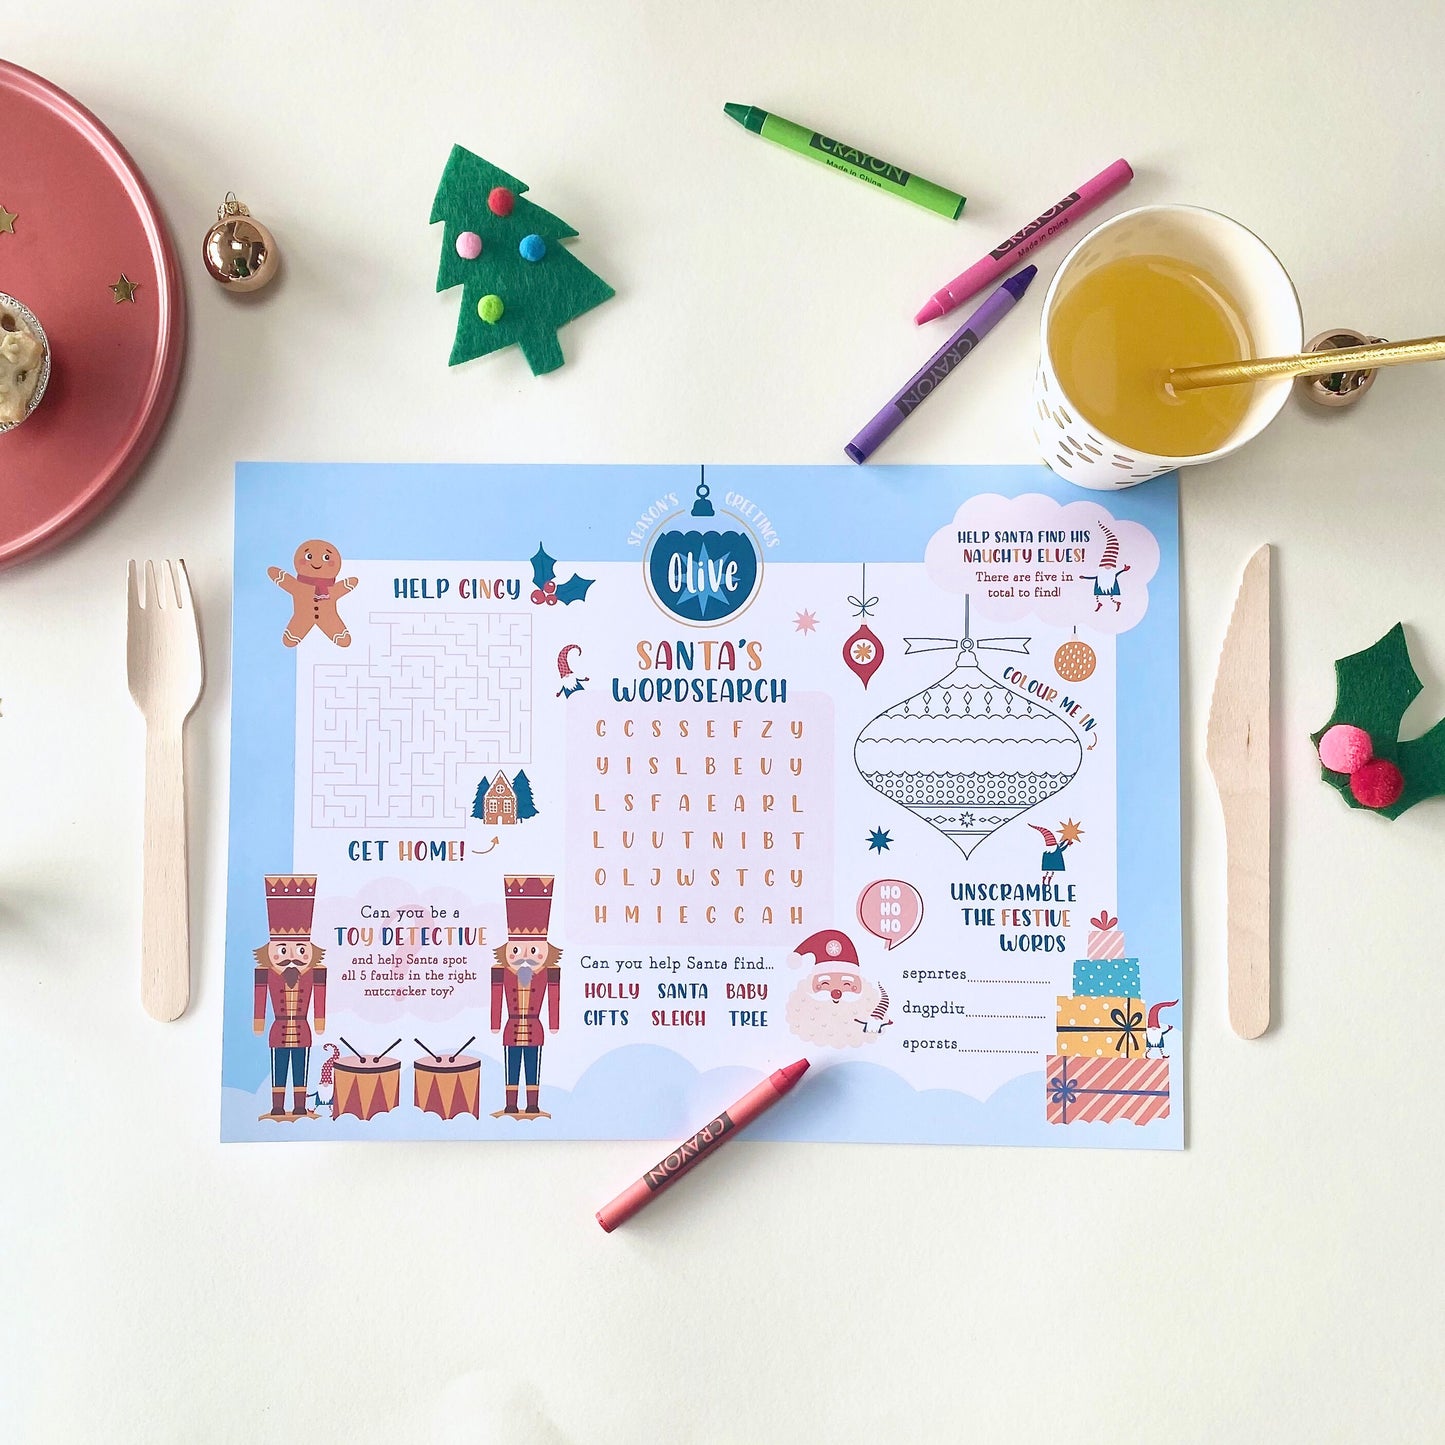 CRAYON
Made in China
CRAYON
Made in China
CRAYON
SEASON'S GREETINGS
Olive
HELP GINGY
GET HOME!
SANTA'S
WORDSEARCH
G C S S E F Z Y
Y I S L B E U Y
L S F A E A R L
L U U T N I B T
O L J W S T G Y
H M I E G G A H
Can you help Santa find...
HOLLY SANTA BABY
GIFTS SLEIGH TREE
HELP SANTA FIND HIS
NAUGHTY ELVES!
There are five in
total to find!
COLOUR ME IN
Can you be a
TOY DETECTIVE
and help Santa spot
all 5 faults in the right
nutcracker toy?
HO
HO
HO
UNSCRAMBLE
THE FESTIVE
WORDS
sepnrtes
dngpdiu
aporsts
CRAYON